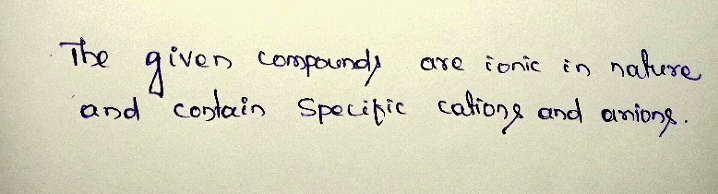 The given compounds are ionic in nature
and contain specific cations and anions.